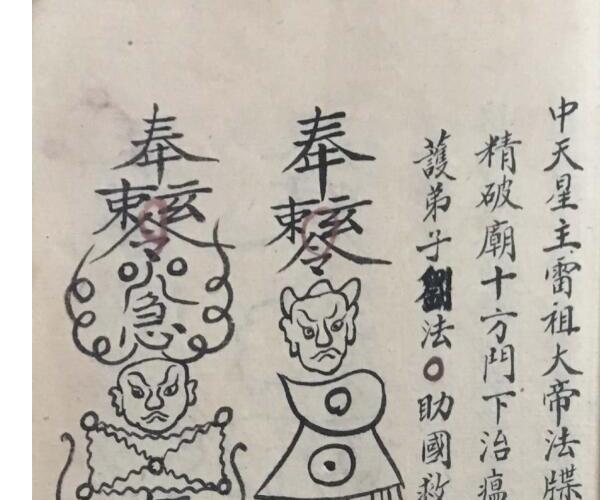 中天星主雷祖大帝法牒
精破廟十方門下治瘟
護弟子法〇助國救
奉
令
奉
令
急